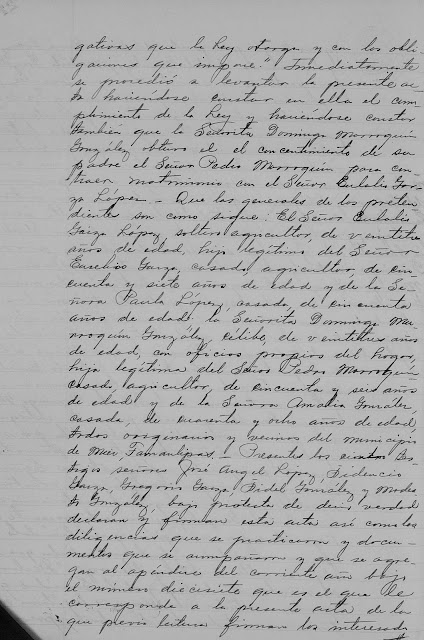 gativas que la ley otorga y con los obli-
gaciones que impone." Inmediatamente
se procedió a levantar la presente ac-
ta haciéndose constar en ella el cum-
plimiento de la Ley y haciéndose constar
también que la Señorita Dominga Marroquín
González obtuvo el el concentimiento de su
padre el Señor Pedro Marroquín para con-
traer matrimonio con el Señor Eulalio Gar-
za López. - Que las generales de los preten-
dientes son como sigue: El Señor Eulalio
Garza López, soltero agricultor, de veintitres
años de edad, hijo legítimo del Señor
Eusebio Garza, casado, agricultor, de cin-
cuenta y siete años de edad y de la Se-
ñora Paula López, casada, de cincuenta
años de edad: la Señorita Dominga Ma-
rroquín González, célibe, de veintitres años
de edad, con oficios propios del hogar,
hija legítima del Señor Pedro Marroquín
casado, agricultor, de cincuenta y seis años
de edad y de la Señora Amalia González,
casada, de cuarenta y ocho años de edad,
todos originarios y vecinos del municipio
de Mier, Tamaulipas. - Presentes los tes-
tigos señores José Angel López, Fidencio
Garza, Gregorio Garza, Fidel González y Modes-
to González, bajo protesta de decir verdad
declaran y firman esta acta así como las
diligencias que se practicaron y docu-
mentos que se acompañaron y que se agre-
gan al apéndice del corriente año bajo
el número diecisiete que es el que le
corresponde a la presente acta de la
que previa lectura firman los interesado